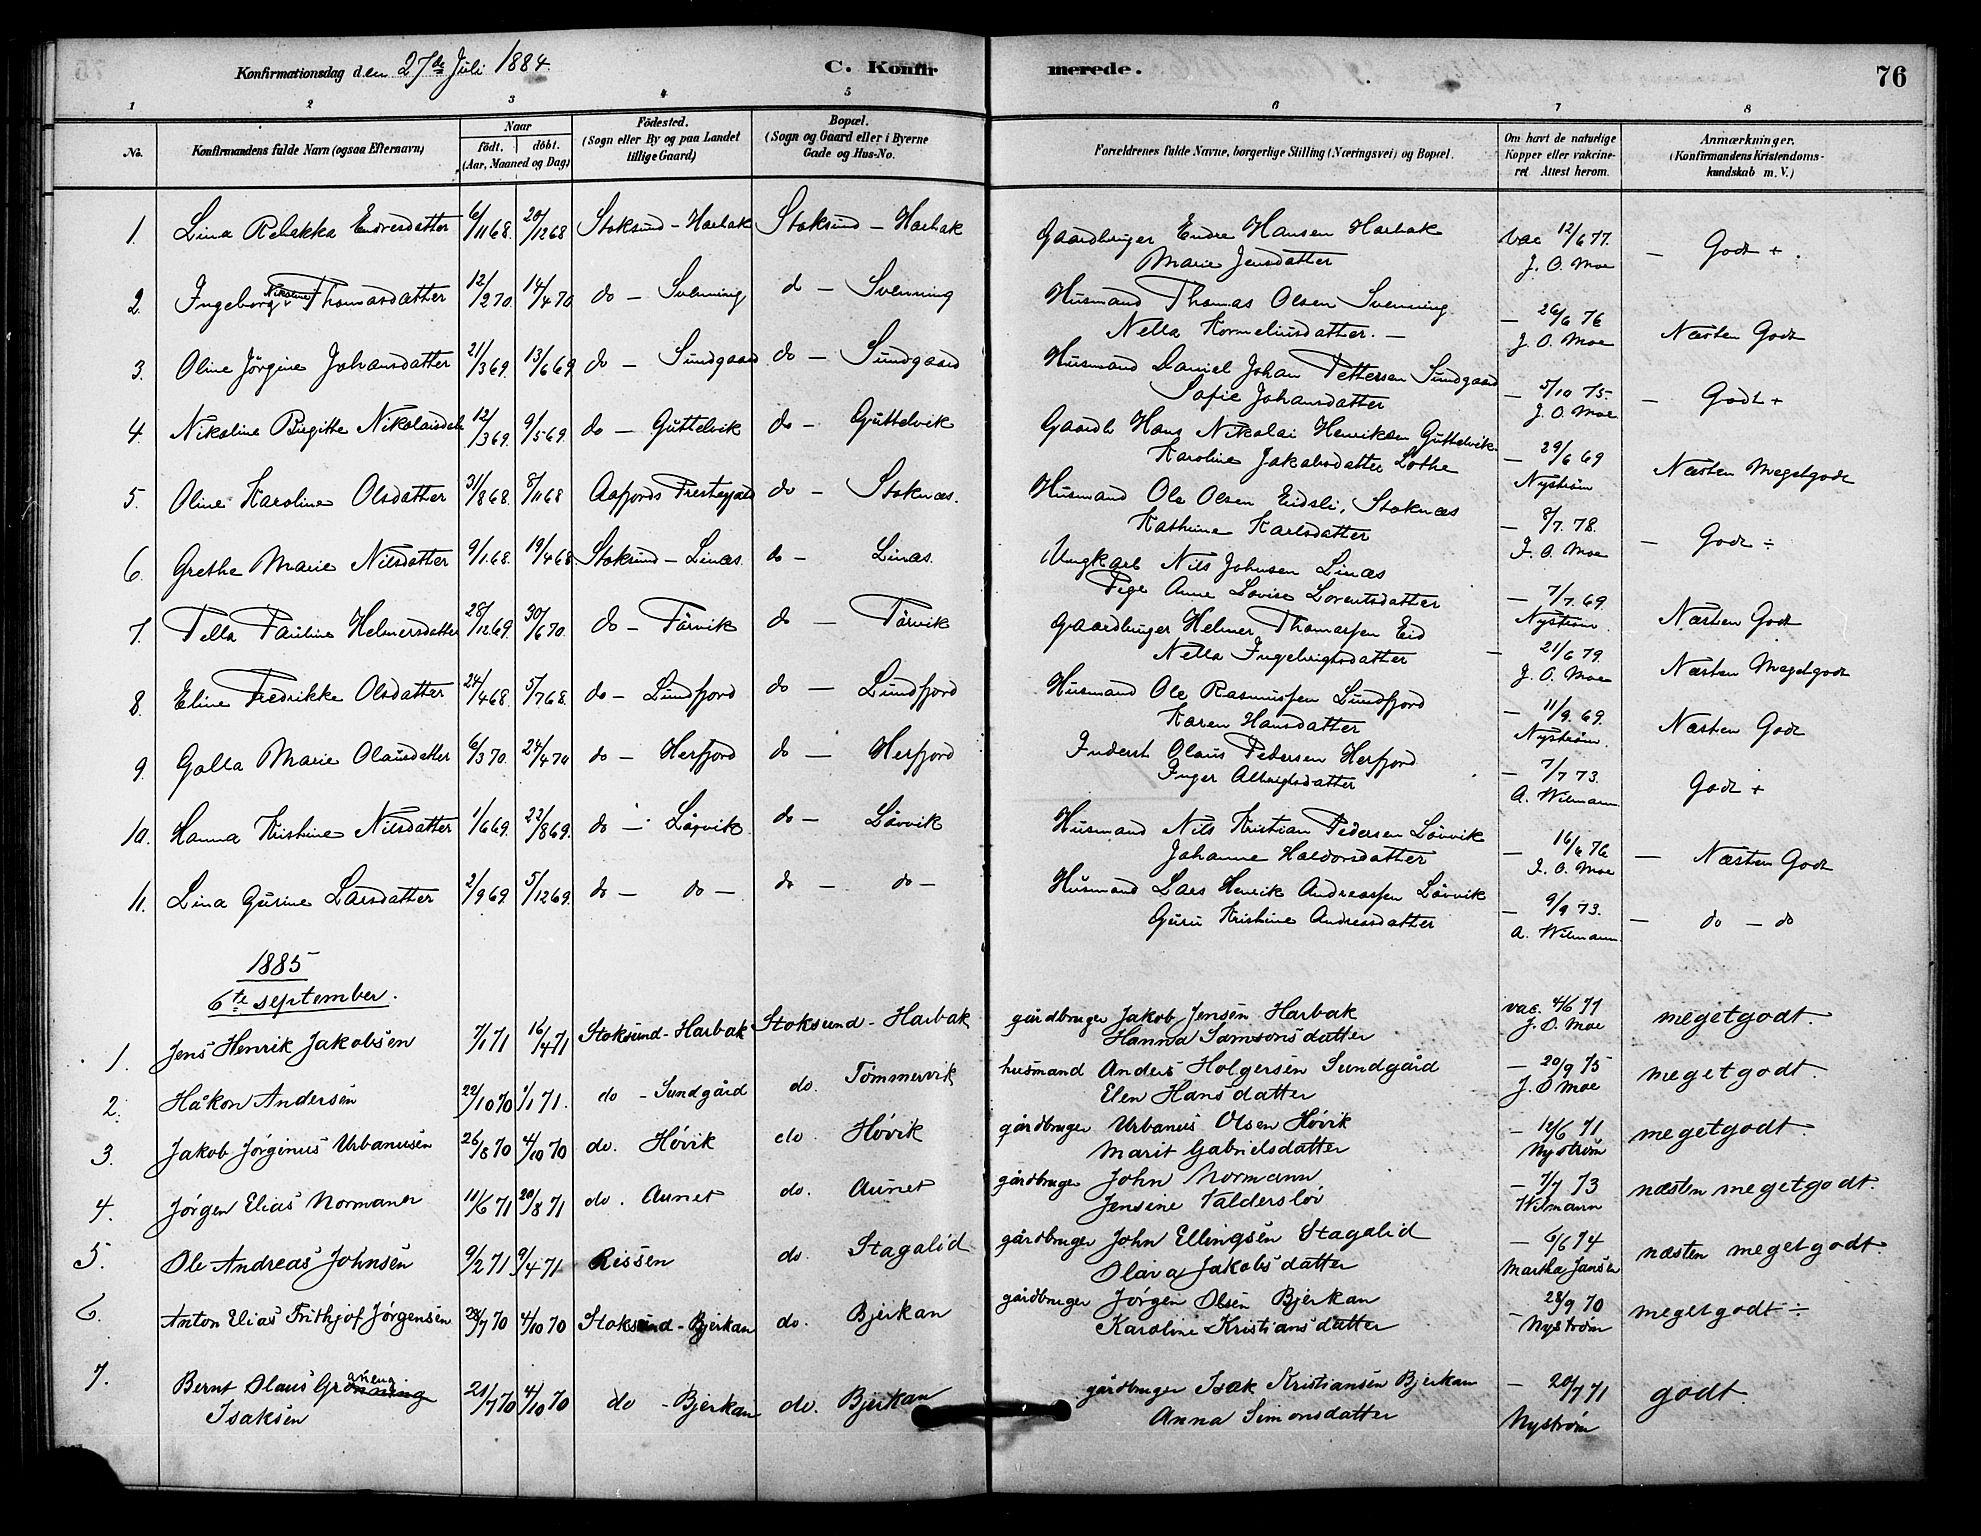 Konfirmationsdag den 27de Juli 1884. C. Konfirmerede. 76
1 2 3 4 5 6 7 8
No. Konfirmandens fulde Navn (ogsaa Efternavn) Naar födt. döbt. (Aar, Maaned og Dag) Födested. (Sogn eller By og paa Landet tillige Gaard) Bopæl. (Sogn og Gaard eller i Byerne Gade og Hus-No. Forældrenes fulde Navne, borgerlige Stilling (Næringsvei) og Bopæl. Om havt de naturlige Kopper eller vakcineret Attest herom. Anmærkninger. (Konfirmandens Kristendomskundskab m. V.)
1. Lina Rebekka Endresdatter 6/11 68. 20/12 68 Stoksund - Harbak Stoksund - Harbak Gaardbruger Endre Hansen Harbak Vac 12/6 77. — Godt +.
Marie Jensdatter J. O. Moe
2. Ingeborg Nikoline Thomasdatter 12/2 70. 14/4 70 do - Svenning d - Svenning Husmand Thomas Olsen Svenning — 26/6 76 Næsten Godt
Nella Korneliusdatter. — J. O. Moe
3. Oline Jörgine Johansdatter 21/3 69. 13/6 69 do - Sundgaard do - Sundgaard Husmand Daniel Johan Pettersen Sundgaard — 5/10 75. — Godt +
Sofie Johansdatter J. O. Moe
4. Nikoline Birgitte Nikolaisdatr 12/3 69. 9/5 69. do - Guttelvik do - Guttelvik Gaardb Hans Nikolai Henriksen Guttelvik — 29/6 69 Næsten Megetgodt
Karoline Jakobsdatter Lothe Nyström
5. Oline Karoline Olsdatter 31/8 68. 8/11 68 Aafjords Prestegjeld do - Stoknæs. Husmand Ole Olsen Eidsli, Stoknæs — 8/7. 78. — Godt ÷
Kathrine Karlsdatter J. O. Moe
6. Grethe Marie Nilsdatter 9/1 68. 19/4 68 Stoksund - Linæs. do - Linæs. Ungkarl Nils Johnsen Linæs — 7/7. 69. Næsten Godt
Pige Anne Lovise Lorentsdatter Nystrøm
7. Pella Pauline Helmersdatter 28/12 69. 30/6 70. do - Tärvik do - Tärvik Gaardbruger Helmer Thomassen Eid — 21/6 79. Næsten Megetgodt
Nella Ingebrigtsdatter J. O. Moe
8. Eline Fredrikke Olsdatter 24/4 68. 5/7 68. do - Lundfjord do - Lundfjord Husmand Ole Rasmussen Lundfjord — 11/9. 69. Næsten Godt
Karen Hansdatter Nystrøm.
9. Golla Marie Olausdatter 6/3 70. 24/4 70 do - Herfjord do - Herfjord Inderst Olaus Pedersen Herfjord — 7/7 73. Godt +
Inger Albrigtsdatter A. Wilmann
10. Hanna Kristine Nilsdatter 1/6 69. 22/8 69. do - Lövvik do - Lövvik Husmand Nils Kristian Pedersen Lövvik — 16/6 76 — Næsten Godt
Johanne Haldorsdatter J. O. Moe
11. Lina Gurine Larsdatter 2/9 69. 5/12 69. do - do - do - do - Husmand Lars Henrik Andreassen Lövvik — 9/9 73. — do - do
Guru Kristine Andreasdatter A. Wilmann
1885
6te september.
1. Jens Henrik Jakobsen 7/1 71 16/4 71 Stoksund - Harbak Stoksund - Harbak gårdbruger Jakob Jensen Harbak vac. 4/6 77 megetgodt.
Hanna Samsonsdatter J. O. Moe
2. Håkon Andersen 22/10 70 1/1 71. do - Sundgård do. Tömmervik husmand Anders Holgersen Sundgård — 20/9 75 megetgodt.
Elen Hansdatter J. O Moe
3. Jakob Jørginus Urbanusen 26/8 70 4/10 70 do. Høvik do. Høvik gårdbruger Urbanus Olsen Høvik — 12/6 71 megetgodt.
Marit Gabrielsdatter Nystrøm
4. Jørgen Elias Normann 11/6 71 20/8 71 do. Aunet do. Aunet gårdbruger John Normann — 7/7 73 næsten megetgodt.
Jensine Valdersløv Wilmann
5. Ole Andreas Johnsen 9/2 71 9/4 71 Rissen do. Stagalid gårdbruger John Ellingsen Stagalid — 6/6 74 næsten megetgodt.
Olava Jakobsdatter Martha Jansen
6. Anton Elias Frithjof Jørgensen 28/7 70 4/10 70 Stoksund - Bjerkan do. Bjerkan gårdbruger Jørgen Olsen Bjerkan — 28/9 70 megetgodt ÷
Karoline Kristiansdatter Nystrøm
7. Bernt Olaus 21/7 70 4/10 70 do - Bjerkan do. Bjerkan gårdbruger Isak Kristiansen Bjerkan — 20/7 71 godt.
Isaksen Anna Simonsdatter Nystrøm